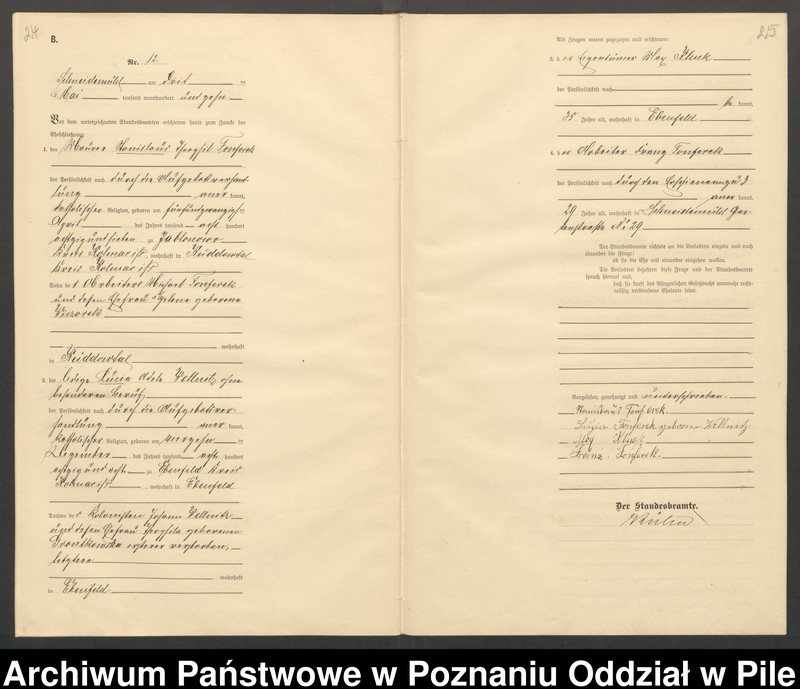 24
B.
Nr. 12
Schneidemühl am drei ten
Mai tausend neunhundert und zehn
Vor dem unterzeichneten Standesbeamten erschienen heute zum Zwecke der
Eheschließung:
1. der Maurer Stanislaus Theophil Tonferek
der Persönlichkeit nach durch die Aufgebotsverhand-
lung aner kannt,
katholischer Religion, geboren am fünfundzwanzigsten
April des Jahres tausend acht hundert
achtzig und sieben zu Jablonowo
Kreis Kolmar i/P, wohnhaft in Küddowtal
Kreis Kolmar i/P
Sohn des Arbeiters Michael Tonferek
und dessen Ehefrau Helene geborene
wohnhaft
in Küddowtal
2. die ledige Lucia Adele Wellnitz, ohne
besonderen Beruf,
der Persönlichkeit nach durch die Aufgebotsver-
handlung aner kannt,
katholischer Religion, geboren am vierzehn ten
Dezember des Jahres tausend acht hundert
achtzig und acht zu Ebenfeld Kreis
Kolmar i/P, wohnhaft in Ebenfeld
Tochter des Kolonisten Johann Wellnitz
und dessen Ehefrau Theophila geborenen
ersterer verstorben,
letztere
wohnhaft
in Ebenfeld
25
Als Zeugen waren zugezogen und erschienen:
3. der Eigentümer Max Kluck
der Persönlichkeit nach
be kannt,
35 Jahre alt, wohnhaft in Ebenfeld
4. der Arbeiter Franz Tonferek
der Persönlichkeit nach durch den
aner kannt,
29 Jahre alt, wohnhaft in Schneidemühl Gar-
tenstraße № 29
Der Standesbeamte richtete an die Verlobten einzeln und nach
einander die Frage:
ob sie die Ehe mit einander eingehen wollen.
Die Verlobten bejahten diese Frage und der Standesbeamte
sprach hierauf aus,
daß sie kraft des Bürgerlichen Gesetzbuchs nunmehr recht-
mäßig verbundene Eheleute seien.
Vorgelesen, genehmigt und unterschrieben.
Stanislaus Tonferek.
Luzia Tonferek geborene Wellnitz
Max Kluck
Franz Tonferek.
Der Standesbeamte.
Archiwum Państwowe w Poznaniu Oddział w Pile